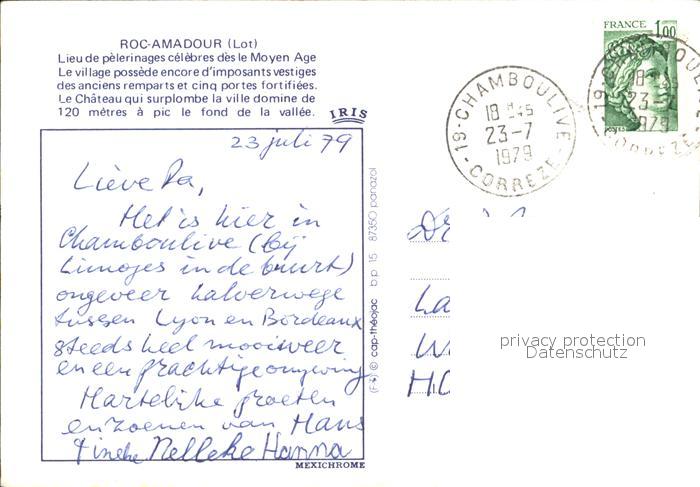 ROC-AMADOUR (Lot)
Lieu de pèlerinages célèbres dès le Moyen Age
Le village possède encore d'imposants vestiges
des anciens remparts et cinq portes fortifiées.
Le Château qui surplombe la ville domine de
120 mètres à pic le fond de la vallée.
IRIS
23 juli 79
Lieve Pa,
Het is hier in
Chamboulive (bij
Limoges in de buurt)
ongeveer halverwege
tussen Lyon en Bordeaux
steeds heel mooi weer
en een prachtige omgeving
Hartelijke groeten
en zoenen van Hans
Tineke Nelleke Hanna
MEXICHROME
cap-théojac bp 15 87350 panazol
FRANCE 1,00
19-CHAMBOULIVE
18H45
23-7
1979
CORREZE
18
23-7
1979
CORREZE
privacy protection
Datenschutz